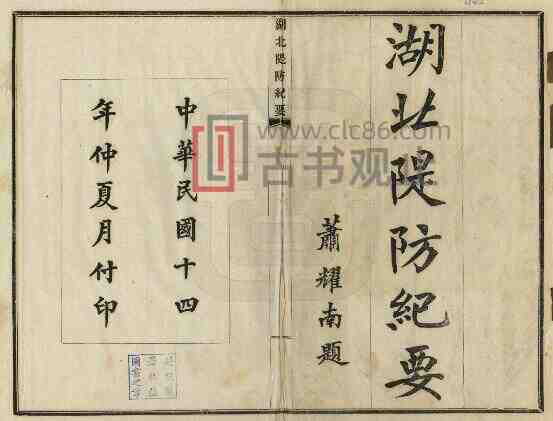 湖北隄防紀要
蕭耀南題
湖北隄防紀要
中華民國十四
年仲夏月付印
www.clc86.com
古书观止